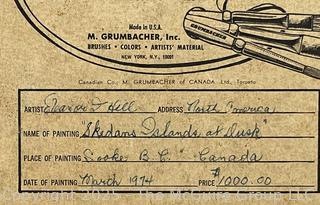 Made in U.S.A.
M. GRUMBACHER, Inc.
BRUSHES • COLORS • ARTISTS' MATERIAL
NEW YORK, N.Y. 10001
Canadian Co., M. GRUMBACHER of CANADA Ltd., Toronto
ARTIST Hill ADDRESS North America
NAME OF PAINTING "Skedans Islands at Dusk"
PLACE OF PAINTING Sooke B.C. " Canada
DATE OF PAINTING March 1974 PRICE $1000.00